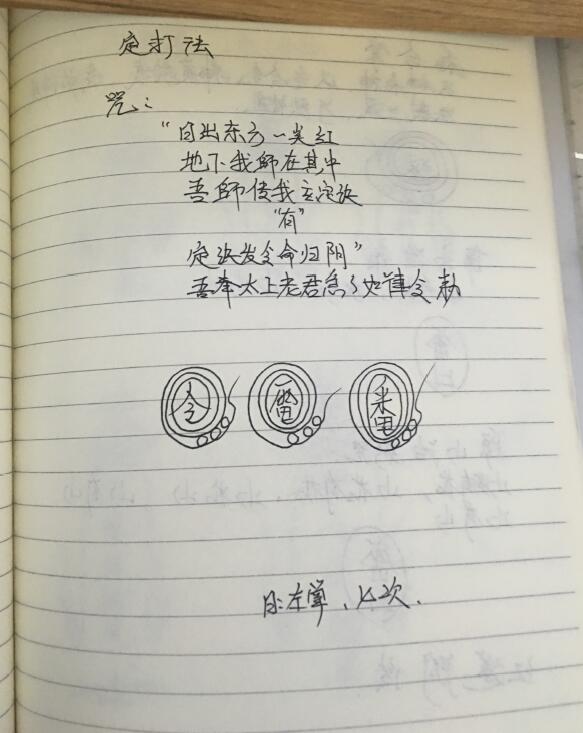 定打法
咒：
“日出东方一点红
地下我師在其中
吾師传我玄定诀
“有”
定法发令命归阴”
吾奉太上老君急〻如律令勅
令
番
左掌、 次.